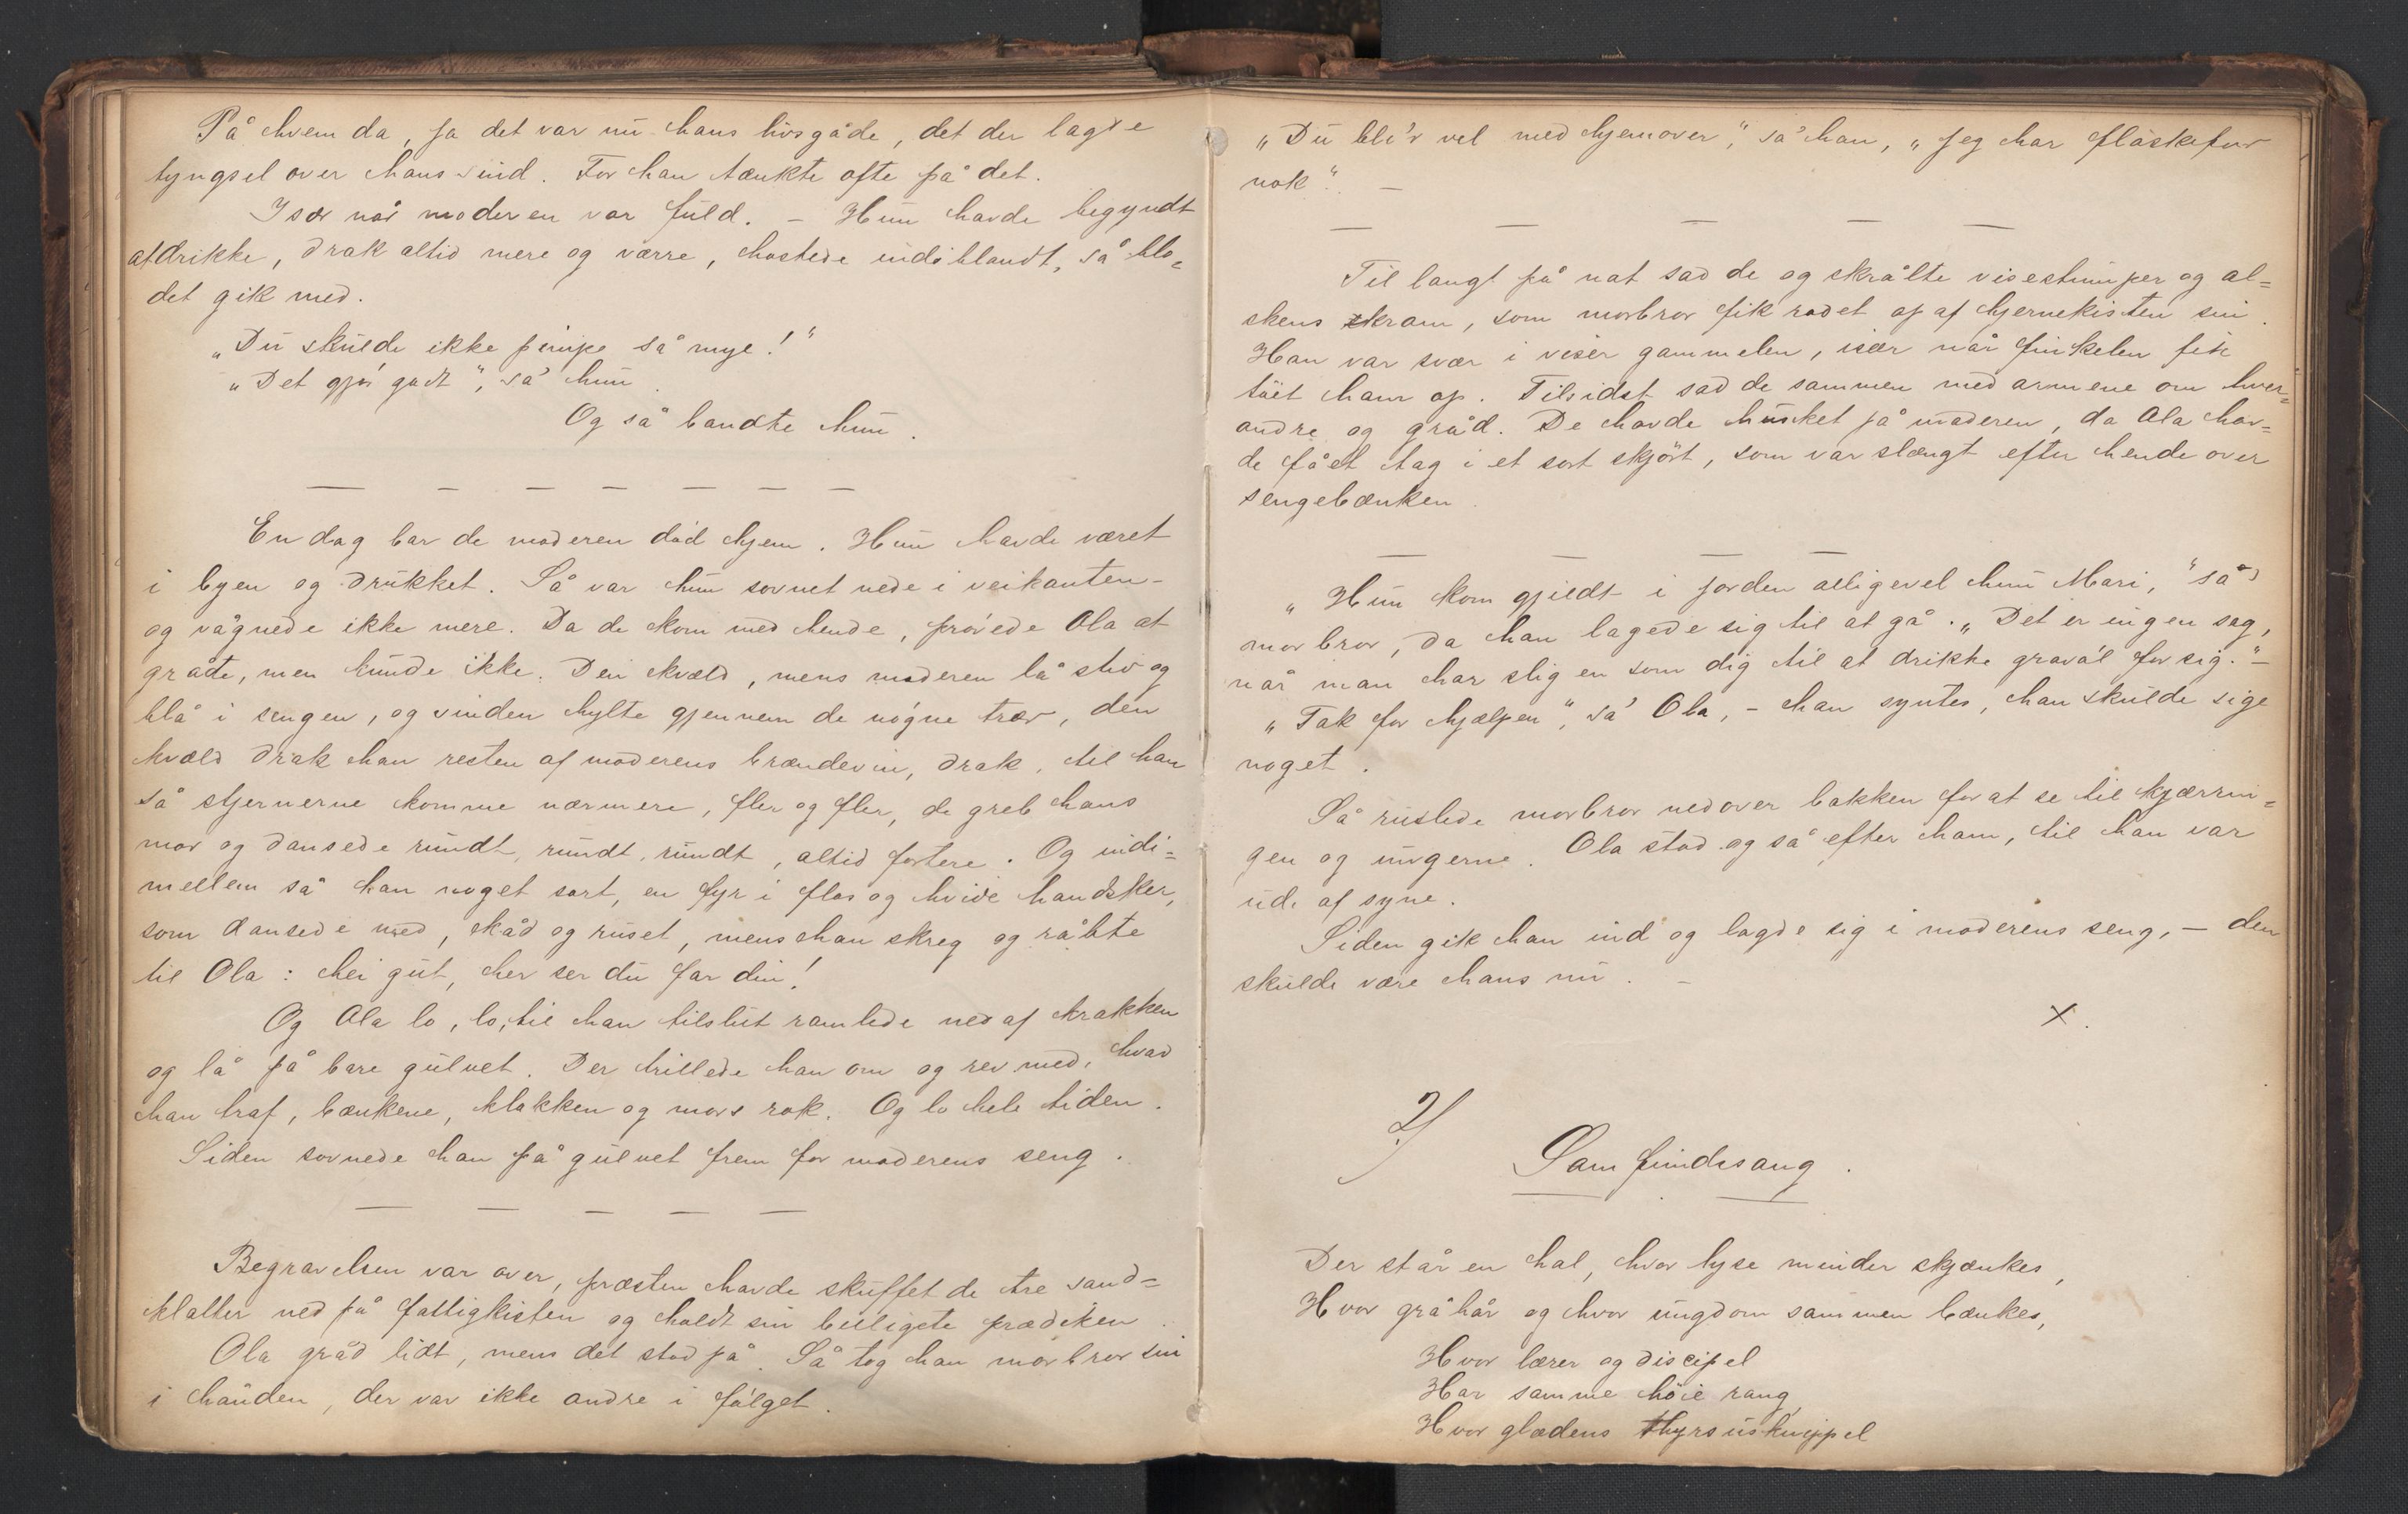 På hvem da, ja det var nu hans livsgåde, det der lagde
tyngsel over hans sind. For han tænkte ofte på det.
Især når moderen var fuld. – Hun havde begyndt
at drikke, drak altid mere og værre, hostede indiblandt, så blo=
det gik med.
„Du skulde ikke pimpe så mye!"
„Det gjør godt", sa' hun.
Og så bandte hun.
En dag bar de moderen død hjem. Hun havde været
i byen og drukket. Så var hun sovnet nede i veikanten –
og vågnede ikke mere. Da de kom med hende, prøvede Ola at
gråte, men kunde ikke. Den kvæld, mens moderen lå stiv og
blå i sengen, og vinden hylte gjennem de nøgne trær, den
kvæld drak han resten af moderens brændevin, drak, til han
så stjernerne komme nærmere, fler og fler, de greb hans
mor og dansede rundt, rundt, rundt, altid fortere. Og indi=
mellem så han noget sort, en fyr i flos og hvide handsker,
som dansede med, kåd og ruset, mens han skreg og råbte
til Ola: hei gut, her ser du far din!
Og Ola lo, lo, til han tilslut ramlede ned af krakken
og lå på bare gulvet. Der trillede han om og rev med, hvad
han traf, bænkene, klokken og mors rok. Og lo hele tiden.
Siden sovnede han på gulvet frem for moderens seng.
Begravelsen var over, præsten havde skuffet de tre sand=
klatter ned på fattigkisten og holdt sin billigste prædiken.
Ola gråd lidt, mens det stod på. Så tog han morbror sin
i hånden, der var ikke andre i følget.
„Du bli'r vel med hjemover," sa' han, „jeg har flaskefor
nok". –
Til langt på nat sad de og skrålte visestumper og al=
skens skram, som morbror fik rodet op af hjernekisten sin.
Han var svær i viser gammelen, især når finkelen fik
tøet ham op. Tilsidst sad de sammen med armene om hver=
andre og gråd. De havde husket på moderen, da Ola hav=
de fået tag i et sort skjørt, som var slængt efter hende over
sengebænken.
„Hun kom gjildt i jorden alligevel hun Mari," sa'
morbror, da han lagede sig til at gå. „Det er ingen sag,
når man har slig en som dig til at drikke gravøl for sig." –
„Tak for hjælpen", sa' Ola, – han syntes, han skulde sige
noget.
Så ruslede morbror nedover bakken for at se til kjærrin=
gen og ungerne. Ola stod og så efter ham, til han var
ude af syne.
Siden gik han ind og lagde sig i moderens seng, – den
skulde være hans nu. –
X.
2/
Samfundssang.
Der står en hal, hvor lyse minder skjænkes,
Hvor gråhår og hvor ungdom sammen bænkes,
Hvor lærer og discipel
Har samme høie rang,
Hvor glædens thyrsusknippel